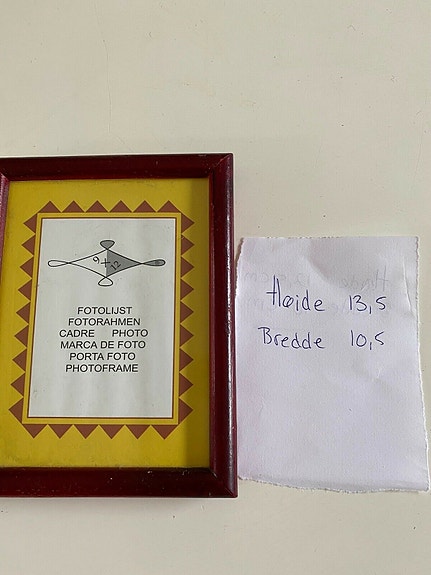 9 x 12
FOTOLIJST
FOTORAHMEN
CADRE PHOTO
MARCA DE FOTO
PORTA FOTO
PHOTOFRAME
Høide 13,5
Bredde 10,5